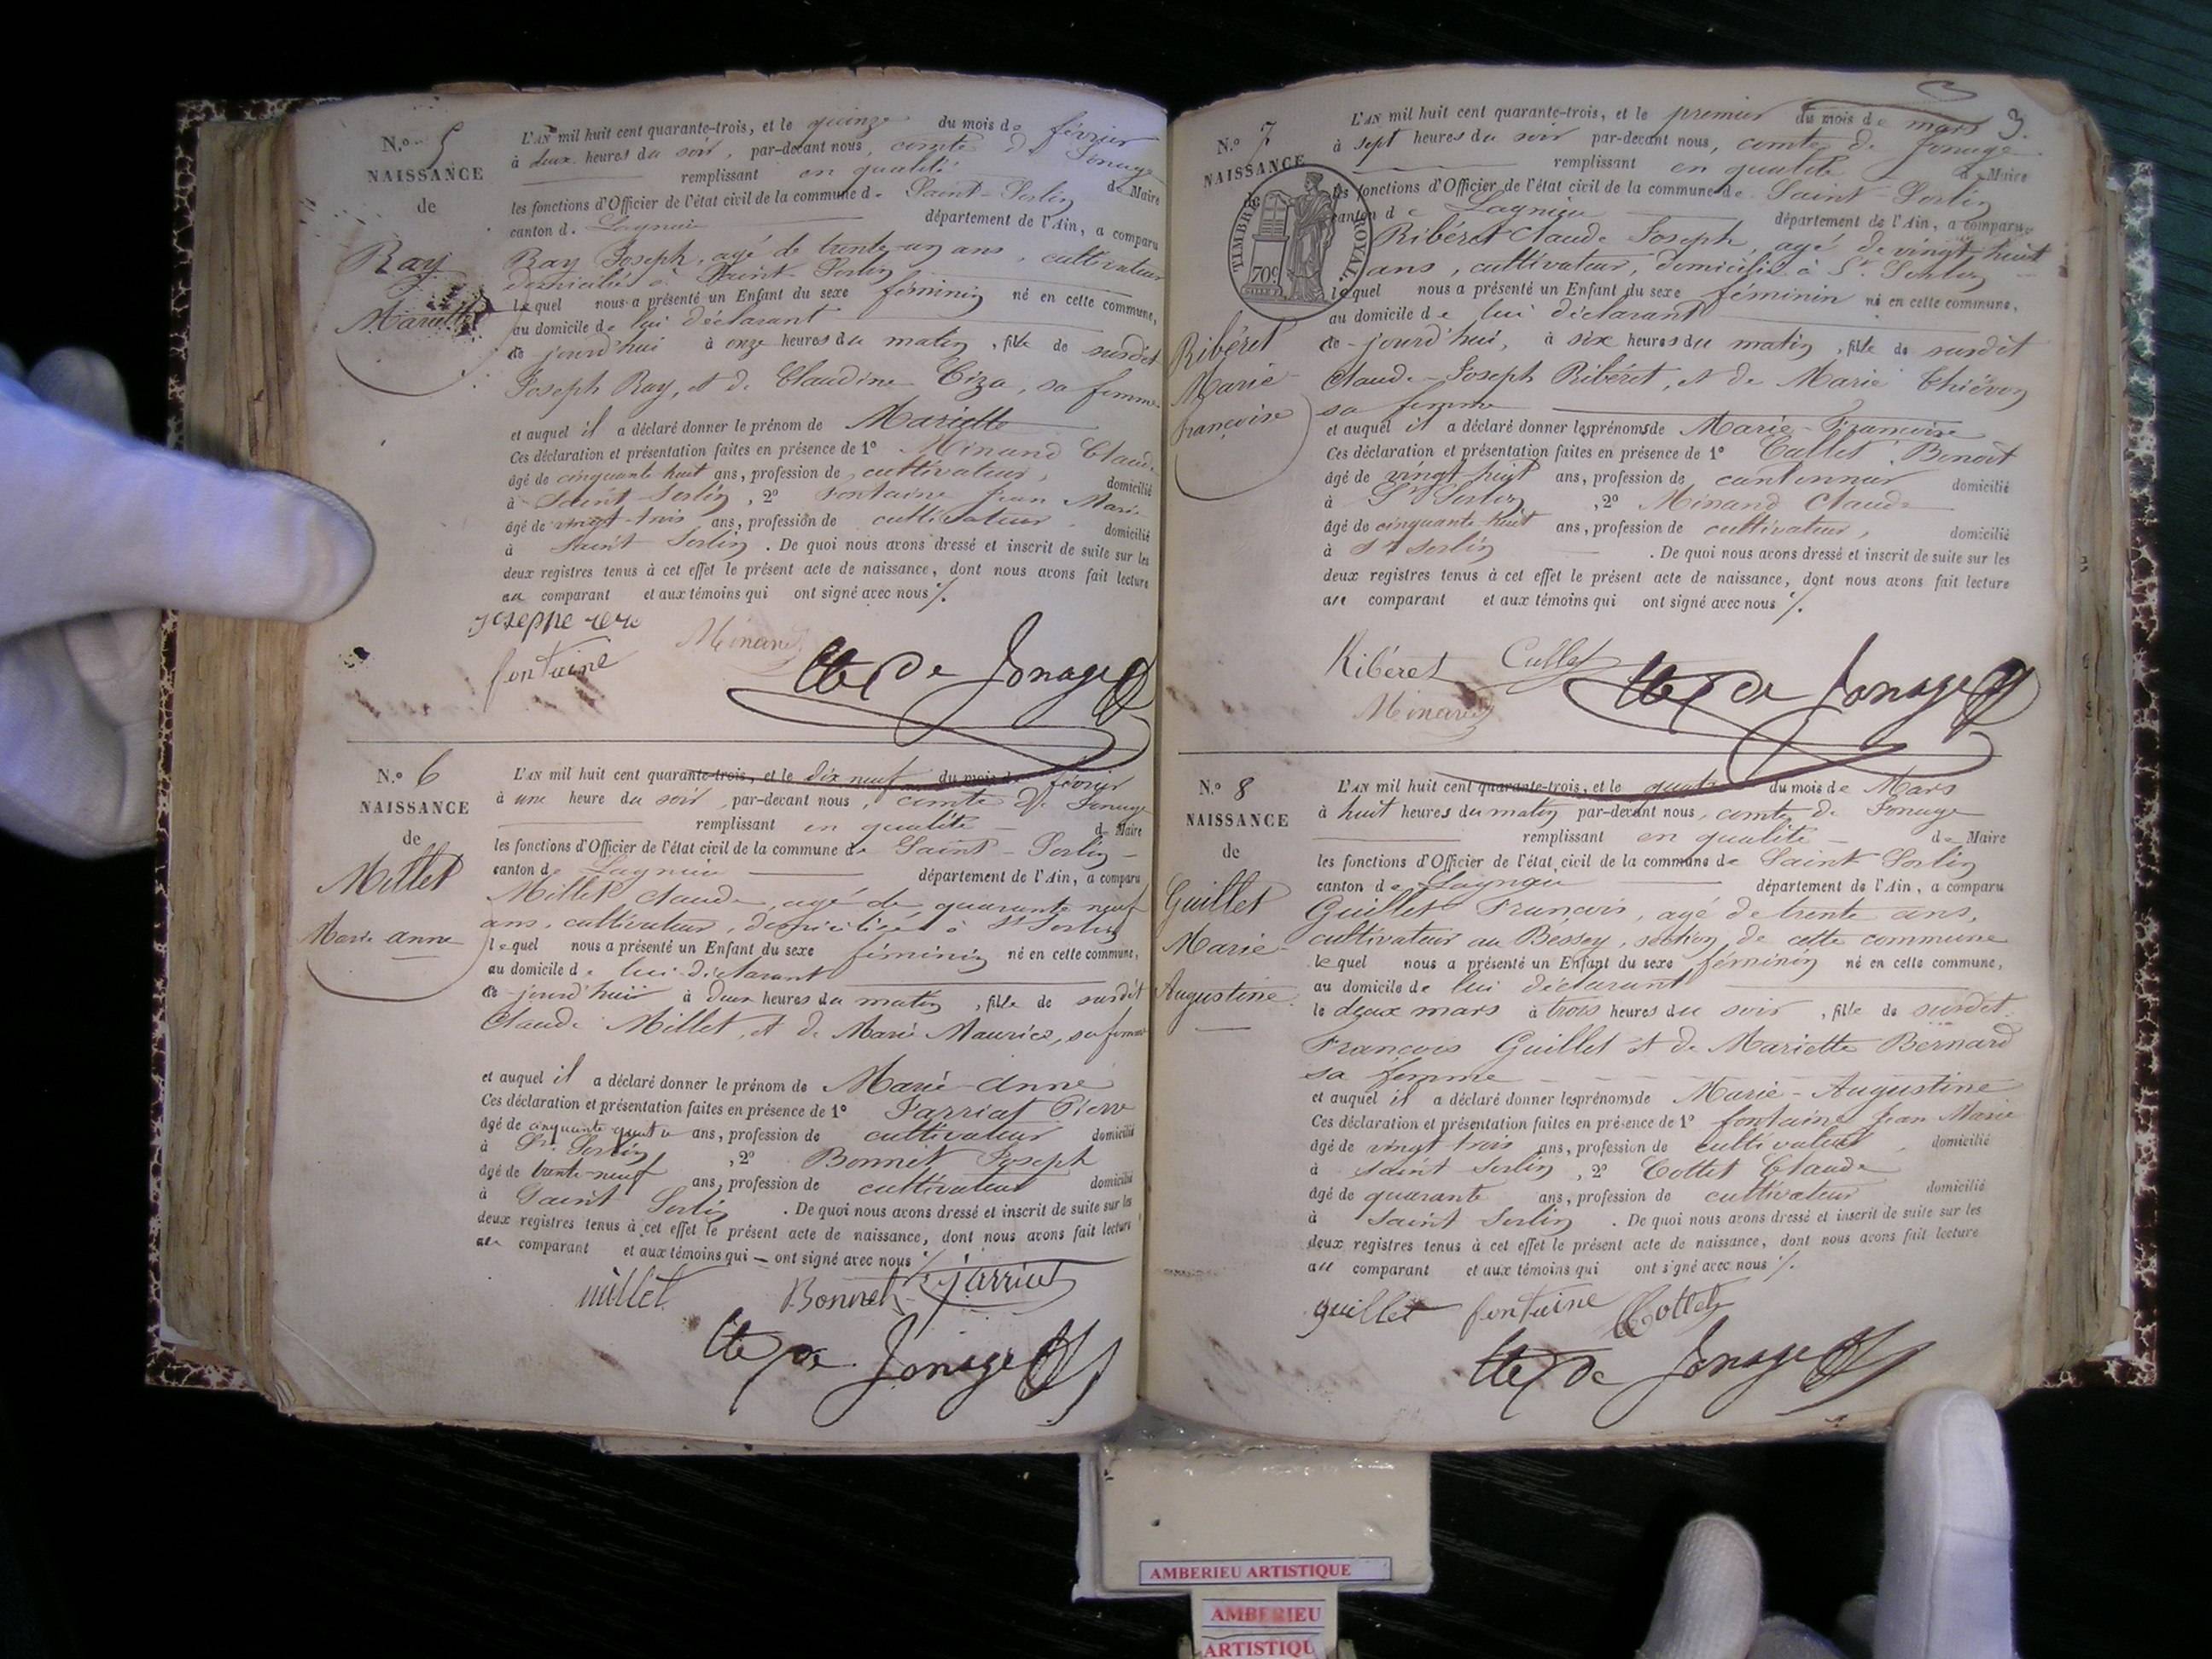 N.o 5
NAISSANCE
de
Ray
Mariette
L'AN mil huit cent quarante-trois, et le quinze du mois de février
à deux heures du soir, par-devant nous, comte de Jonage
remplissant en qualité de Maire
les fonctions d'Officier de l'état civil de la commune de Saint-Sorlin
canton de Lagnieu département de l'Ain, a comparu
Ray Joseph, agé de trente-un ans, cultivateur
domicilié à Saint-Sorlin
lequel nous a présenté un Enfant du sexe féminin né en cette commune,
au domicile de lui déclarant
ce-jourd'hui à onze heures du matin, fille de susdit
Joseph Ray, et de Claudine Ciza, sa femme
et auquel il a déclaré donner le prénom de Mariette
Ces déclaration et présentation faites en présence de 1o Minand Claude
âgé de cinquante huit ans, profession de cultivateur, domicilié
à Saint Sorlin, 2o Fontaine Jean Marie
âgé de vingt-trois ans, profession de cultivateur domicilié
à Saint Sorlin. De quoi nous avons dressé et inscrit de suite sur les
deux registres tenus à cet effet le présent acte de naissance, dont nous avons fait lecture
au comparant et aux témoins qui ont signé avec nous ./.
Minand
fontaine
Cte de Jonage
N.o 6
NAISSANCE
de
Millet
Marie anne
L'AN mil huit cent quarante-trois, et le dix neuf du mois de février
à une heure du soir, par-devant nous, comte de Jonage
remplissant en qualité de Maire
les fonctions d'Officier de l'état civil de la commune de Saint-Sorlin
canton de Lagnieu département de l'Ain, a comparu
Millet claude, agé de quarante neuf
ans, cultivateur, domicilié à St Sorlin
lequel nous a présenté un Enfant du sexe féminin né en cette commune,
au domicile de lui déclarant
ce-jourd'hui à deux heures du matin, fille de susdit
Claude Millet, et de Marie Maurice, sa femme
et auquel il a déclaré donner le prénom de Marie-anne
Ces déclaration et présentation faites en présence de 1o Jarriat Pierre
âgé de cinquante quatre ans, profession de cultivateur domicilié
à St. Sorlin, 2o Bonnet Joseph
âgé de trente-neuf ans, profession de cultivateur domicilié
à Saint Sorlin. De quoi nous avons dressé et inscrit de suite sur les
deux registres tenus à cet effet le présent acte de naissance, dont nous avons fait lecture
au comparant et aux témoins qui — ont signé avec nous ./.
millet Bonnet jarriat
Cte de Jonage
3.
N.o 7
NAISSANCE
de
TIMBRE ROYAL.
70c
Ribéret
Marie
françoise
L'AN mil huit cent quarante-trois, et le premier du mois de mars
à sept heures du soir par-devant nous, comte de Jonage
remplissant en qualité de Maire
les fonctions d'Officier de l'état civil de la commune de Saint-Sorlin
canton de Lagnieu département de l'Ain, a comparu
Ribéret Claude Joseph, agé de vingt-huit
ans, cultivateur, domicilié à St. Sorlin
lequel nous a présenté un Enfant du sexe féminin né en cette commune,
au domicile de lui déclarant
ce-jourd'hui, à six heures du matin, fille de susdit
Claude-Joseph Ribéret, et de Marie Chiévon
sa femme
et auquel il a déclaré donner les prénoms de Marie-Françoise
Ces déclaration et présentation faites en présence de 1o Cullet Benoît
âgé de vingt huit ans, profession de cantonnier domicilié
à St Sorlin, 2o Minand Claude
âgé de cinquante huit ans, profession de cultivateur, domicilié
à St Sorlin. De quoi nous avons dressé et inscrit de suite sur les
deux registres tenus à cet effet le présent acte de naissance, dont nous avons fait lecture
au comparant et aux témoins qui ont signé avec nous ./.
Ribéret Cullet
Minand
Cte de Jonage
N.o 8
NAISSANCE
de
Guillet
Marie
Augustine
L'AN mil huit cent quarante-trois, et le quatre du mois de Mars
à huit heures du matin par-devant nous, comte de Jonage
remplissant en qualité de Maire
les fonctions d'Officier de l'état civil de la commune de Saint Sorlin
canton de Lagnieu département de l'Ain, a comparu
Guillet François, agé de trente ans,
cultivateur au Bessey, section de cette commune
lequel nous a présenté un Enfant du sexe féminin né en cette commune,
au domicile de lui déclarant
le deux mars à trois heures du soir, fille de susdit
François Guillet et de Mariette Bernard
sa femme
et auquel il a déclaré donner les prénoms de Marie-Augustine
Ces déclaration et présentation faites en présence de 1o fontaine Jean Marie
âgé de vingt trois ans, profession de cultivateur, domicilié
à Saint Sorlin, 2o Cottet Claude
âgé de quarante ans, profession de cultivateur domicilié
à Saint Sorlin. De quoi nous avons dressé et inscrit de suite sur les
deux registres tenus à cet effet le présent acte de naissance, dont nous avons fait lecture
au comparant et aux témoins qui ont signé avec nous ./.
guillet fontaine Cottet
Cte de Jonage
AMBERIEU ARTISTIQUE
AMBERIEU
ARTISTIQU